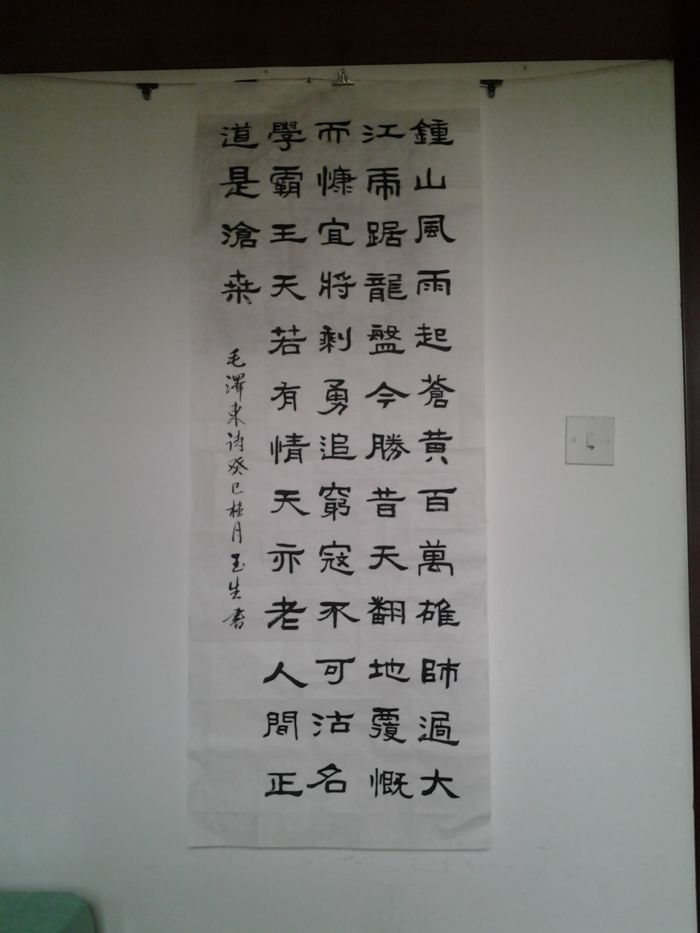 鍾山風雨起蒼黃百萬雄師過大
江虎踞龍盤今勝昔天翻地覆慨
而慷宜將剩勇追窮寇不可沽名
學霸王天若有情天亦老人間正
道是滄桑
毛澤東詩癸巳桂月玉生書